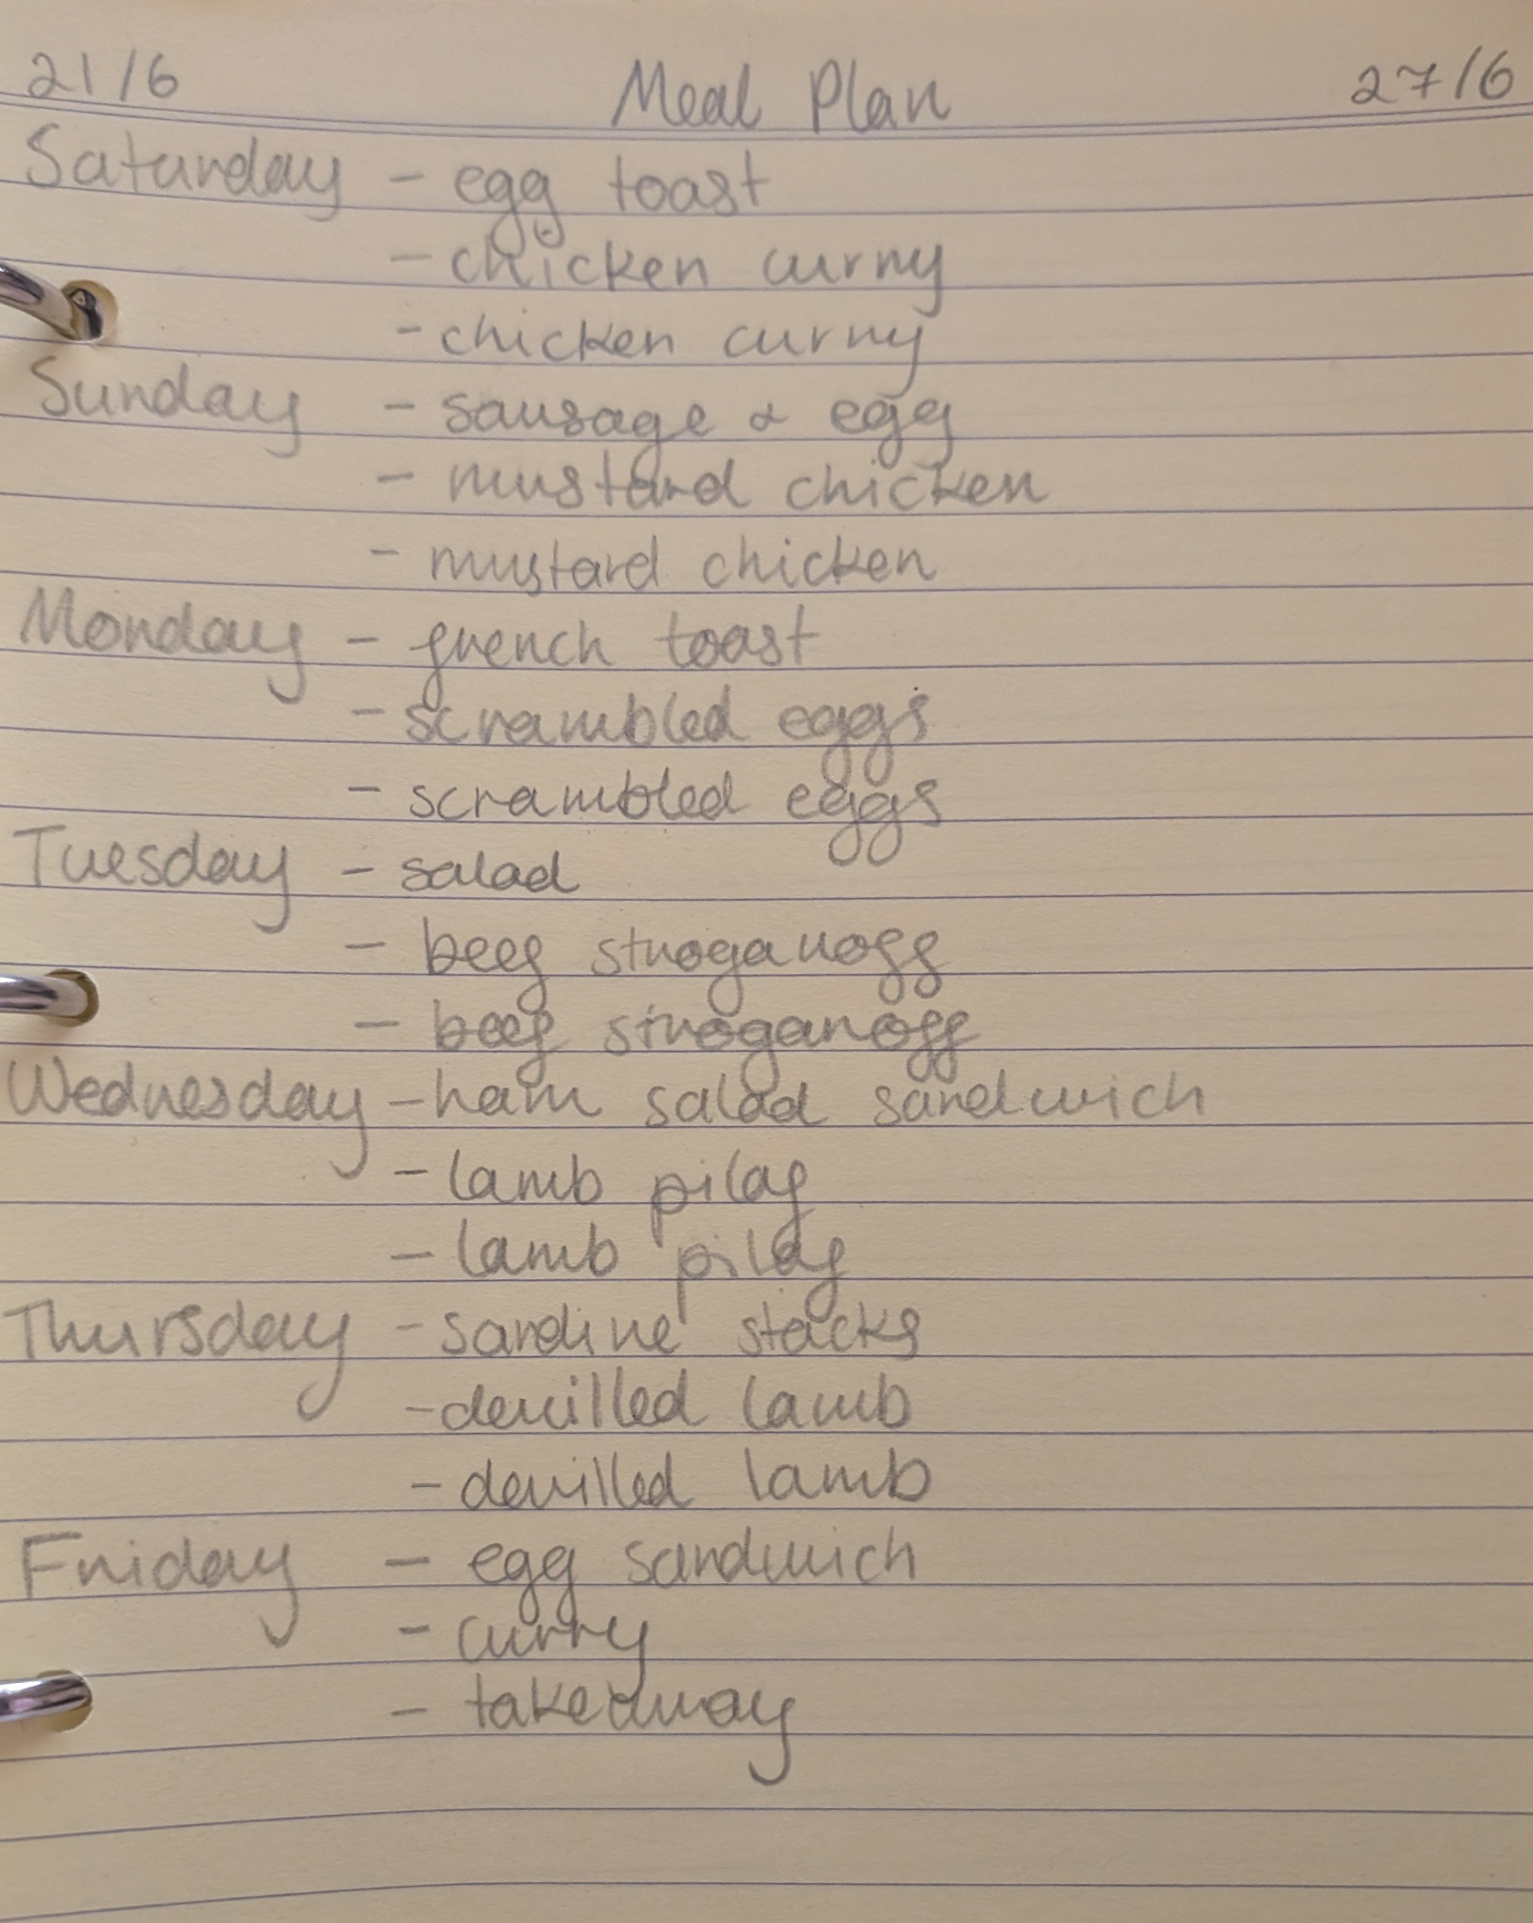 21/6 Meal Plan 27/6
Saturday - egg toast
- chicken curry
- chicken curry
Sunday - sausage & egg
- mustard chicken
- mustard chicken
Monday - french toast
- scrambled eggs
- scrambled eggs
Tuesday - salad
- beef stroganoff
- beef stroganoff
Wednesday - ham salad sandwich
- lamb pilaf
- lamb pilaf
Thursday - sardine stacks
- devilled lamb
- devilled lamb
Friday - egg sandwich
- curry
- takeaway